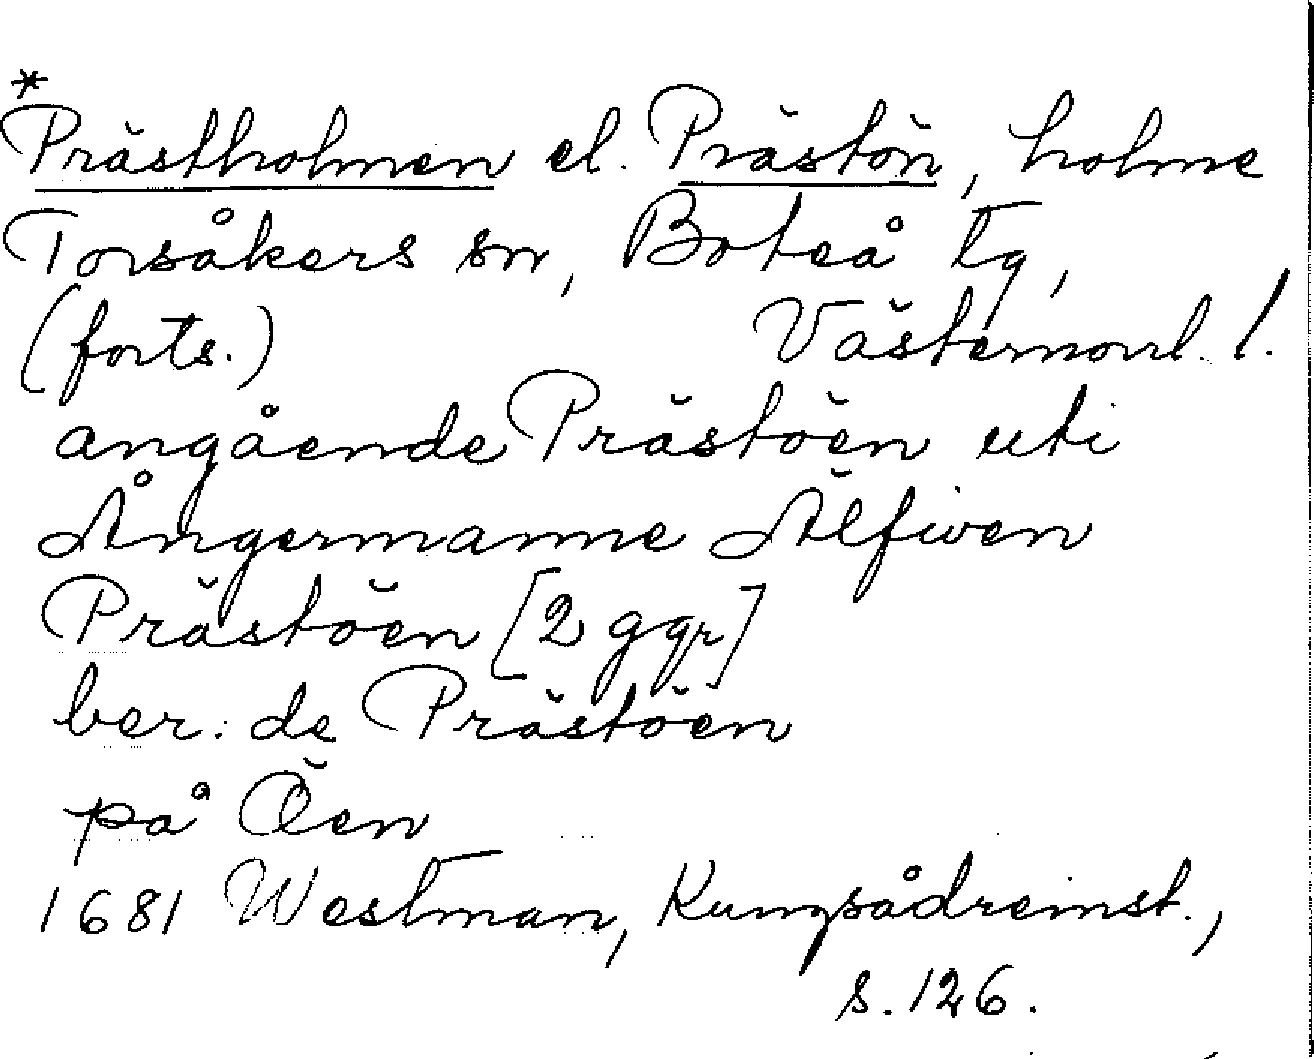 *
Prästholmen el. Prästön, holme
Torsåkers sn, Boteå tg,
(forts.) Västernorrl. l.
angående Prästöen uti
Ångermanne Älfwen
Prästöen [2 ggr]
ber: de Prästöen
på Öen
1681 Westman, Kungsådreinst.,
s. 126.